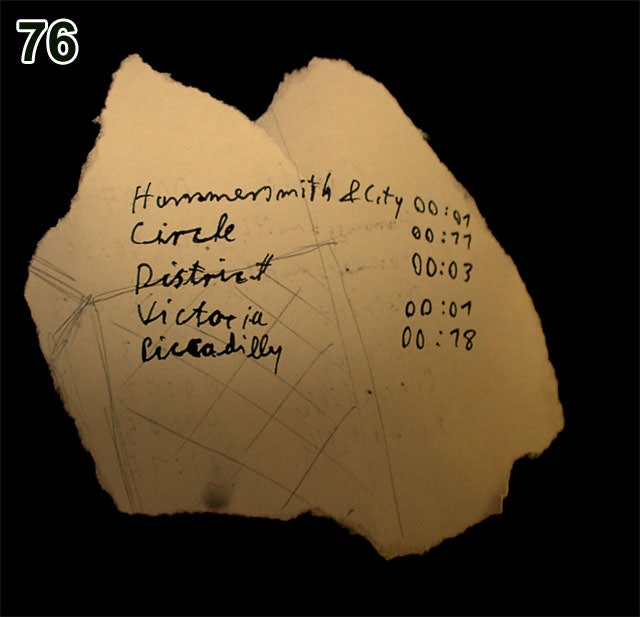 76
Hammersmith & City 00:01
Circle 00:11
District 00:03
Victoria 00:01
Piccadilly 00:18